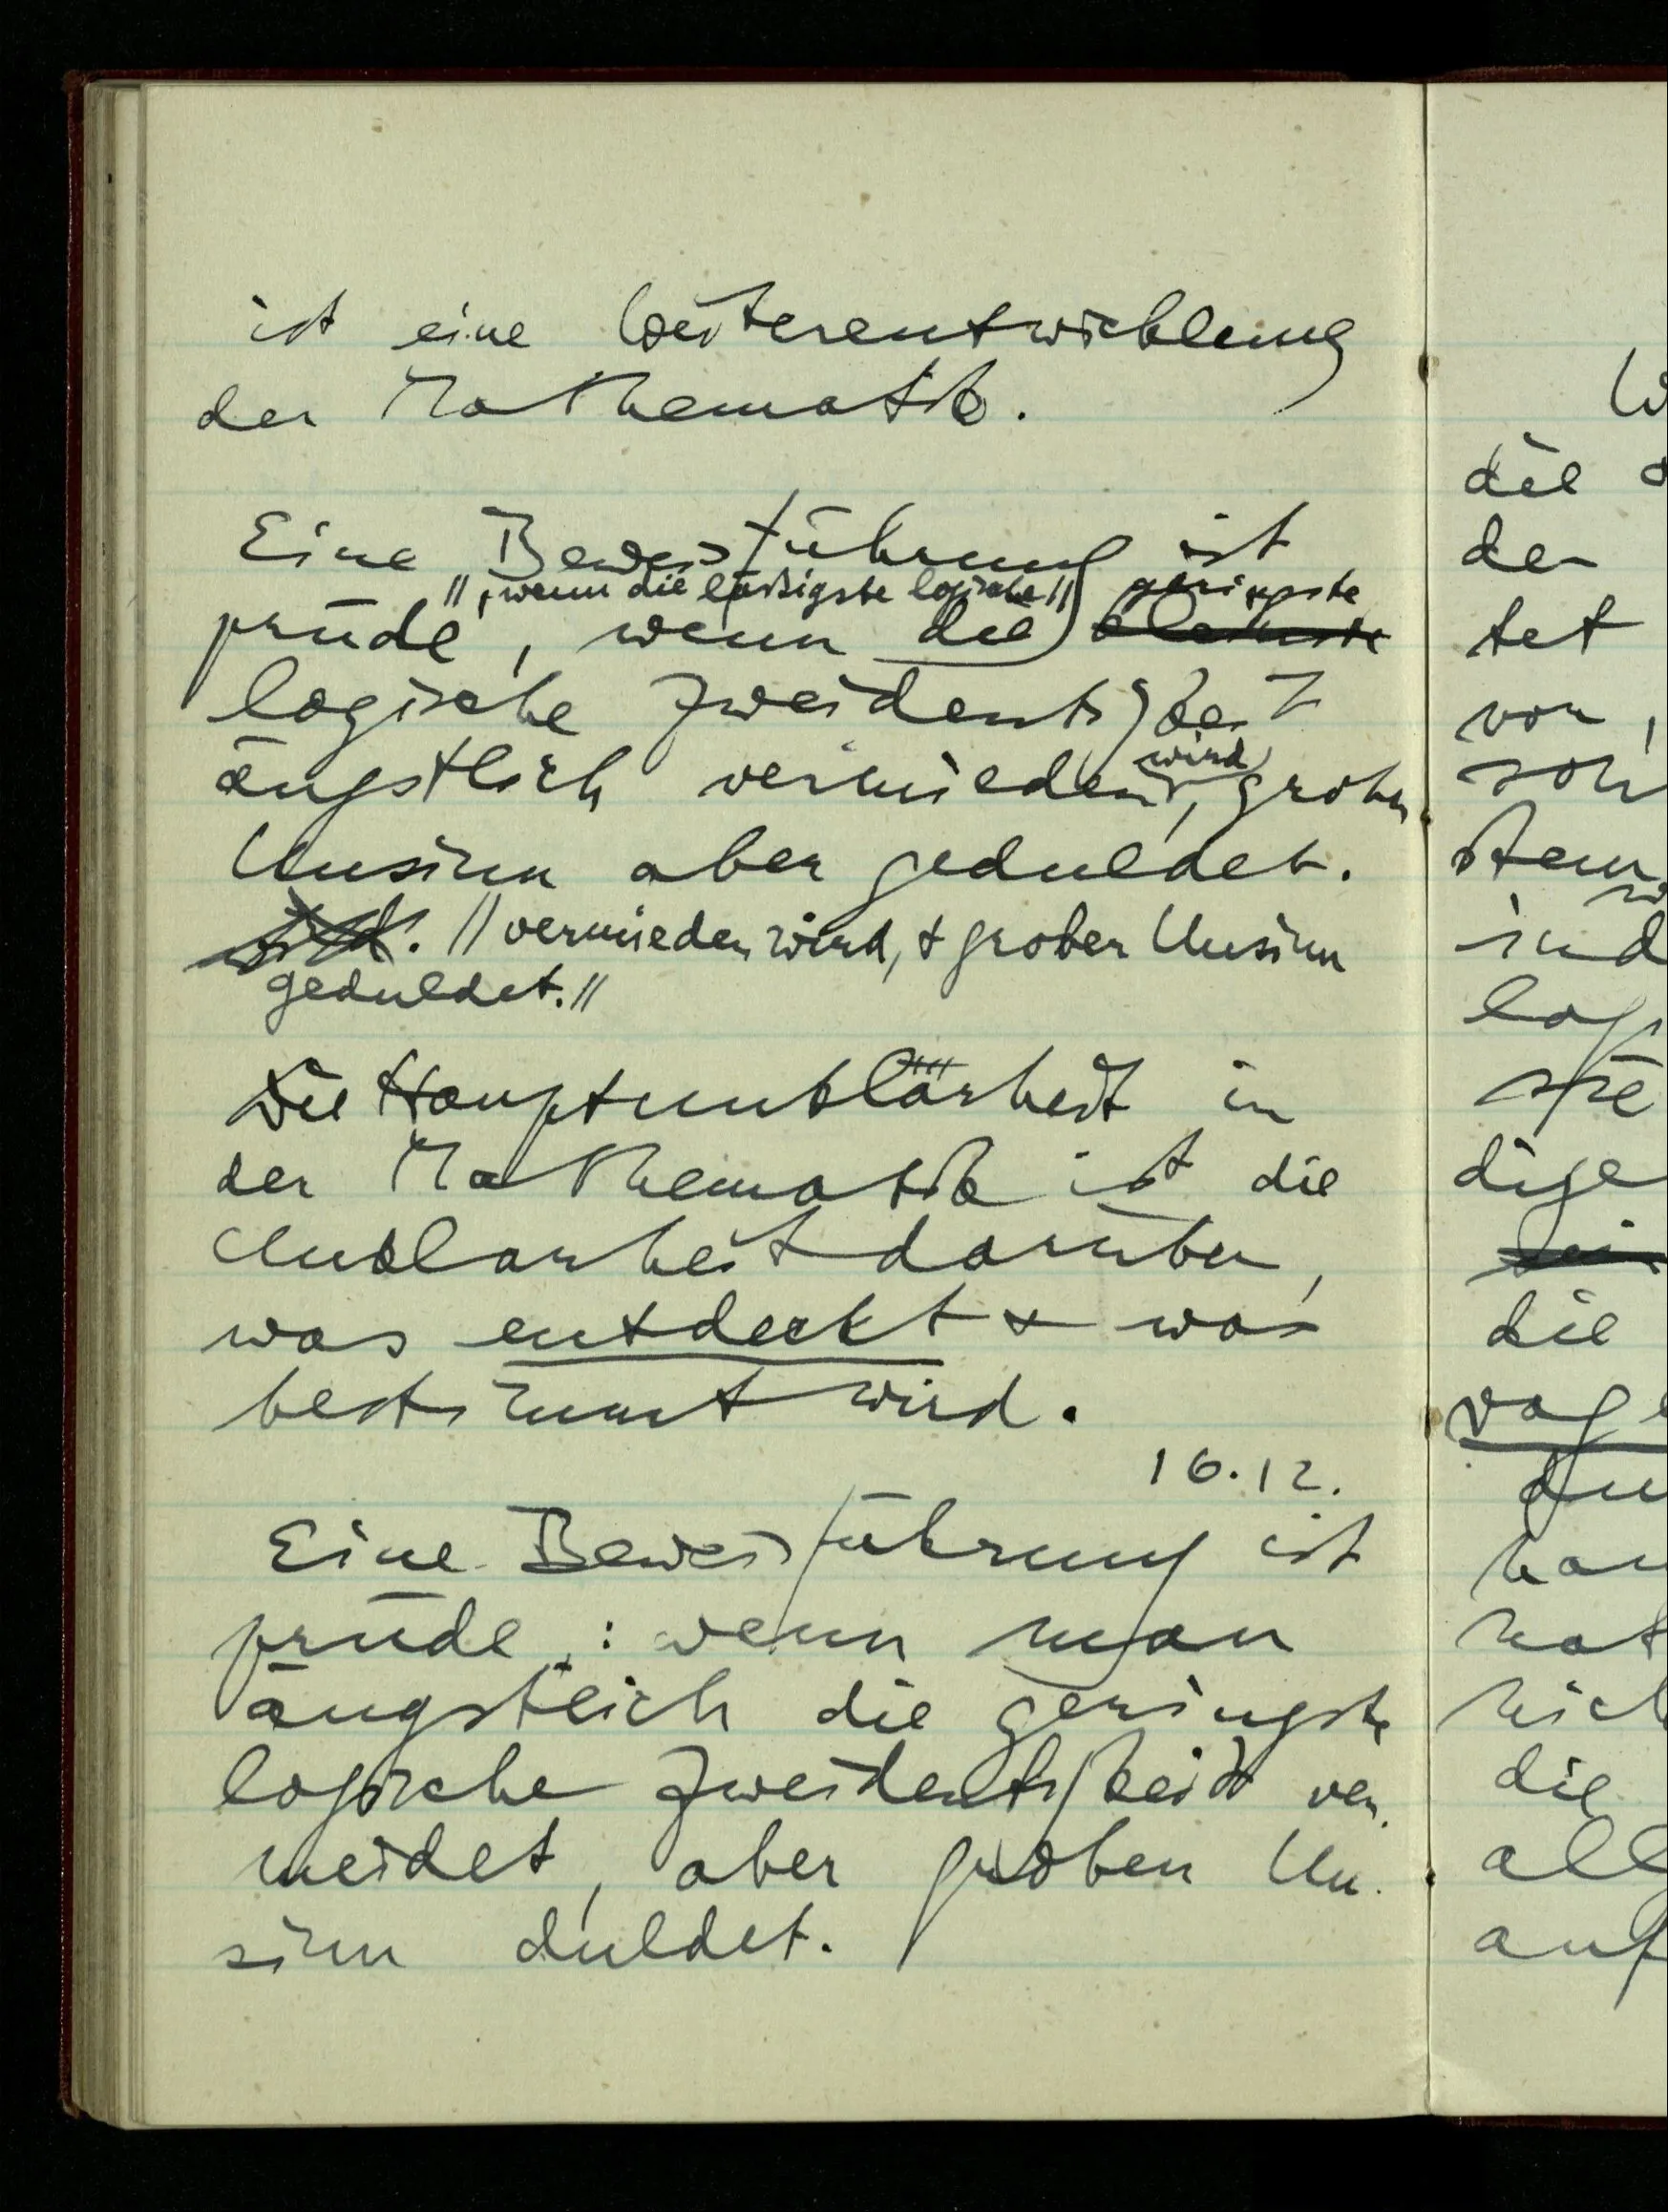 ist eine Weiterentwicklung
der Mathematik.
Eine Beweisführung ist
//, wenn die leiseste logische// geringste
prüde, wenn die kleinste
logische Zweideutigkeit
ängstlich vermieden wird, grober
Unsinn aber geduldet.
wird. // vermieden wird, & grober Unsinn
geduldet.//
Die Hauptunklarheit in
der Mathematik ist die
Unklarheit darüber,
was entdeckt & was
bestimmt wird.
16.12.
Eine Beweisführung ist
prüde: wenn man
ängstlich die geringste
logische Zweideutigkeit ver-
meidet, aber groben Un-
sinn duldet.
die
der
tet
vor,
die